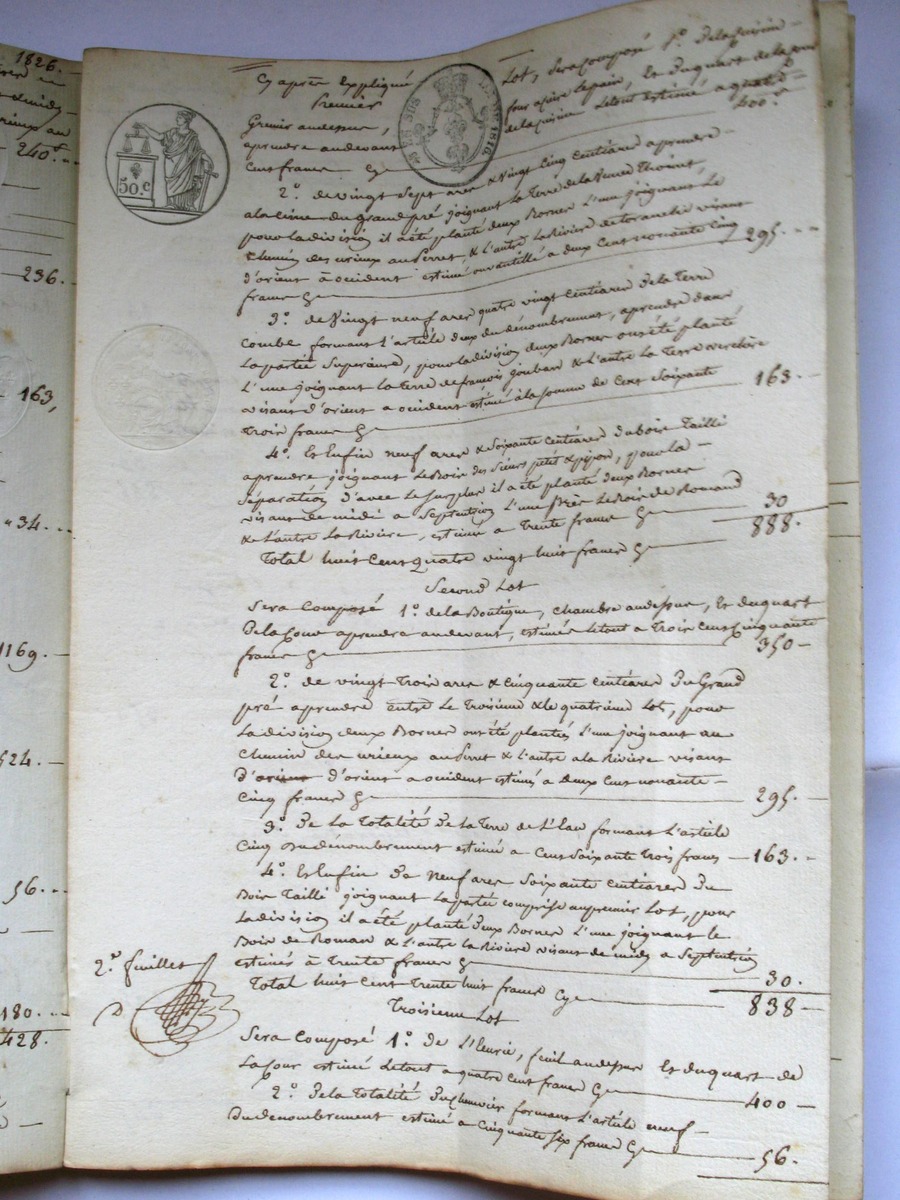 1826.
240.
236.
163,
34.
1169.
524.
56.
180.
428.
50.c
1816.
Cy après Expliqué
Premier Lot, Sera Composé 1.° De la Cuisine
Grenier audessus, four a cuire le pain, Et du quart de la cour
aprendre audevant de la cuisine Le tout estimé a quatre
Cent francs 400.
2.° de vingt Sept ares & Vingt Cinq Centiares aprendre
a la Cime du grand pré joignant la Terre de la Veuve Thoinet
pour la division il a été planté deux Bornes L'une joignant Le
Chemin des urieux au Perret, & L'autre La Rivière visant
d'orient à occident estimé à deux Cent nonante Cinq
francs 295.
3.° de Vingt neuf ares quatre vingt Centiares de la Terre
Combe formant L'article deux du dénombrement, aprendre dans
La partie Superieure, pour la division deux Bornes ont été planté
L'une joignant la Terre de françois Joubart & L'autre La Terre
visant d'orient a occident estimé à la Somme de Cent Soixante
Trois francs 163.
4.° Et Enfin neuf ares & Soixante Centiares du bois Taillé
aprendre joignant Le Bois des Sieurs petit & pipon, pour la
Séparation d'avec Le Surplus il a été planté deux Bornes
visant de midi a Septentrion L'une Près Le Bois de Romand
& L'autre La Rivière, estimé a Trente francs 30
Total huit Cent Quatre vingt huit francs 888.
Second Lot
Sera Composé 1.° de la Boutique, Chambre audessus, Et du quart
De la Cour aprendre audevant, estimée Le tout a Trois Cent Cinquante
francs 350
2.° de vingt Trois ares & Cinquante Centiares Du Grand
pré aprendre entre Le Troisième & le quatrième Lot, pour
La division deux Bornes ont été plantées L'une joignant au
Chemin des urieux au Perret & L'autre a la Rivière visant
d'orient d'orient a occident estimés a Deux Cent nonante
Cinq francs 295.
3.° De La Totalité De la Terre de L'Eau formant L'article
Cinq du dénombrement estimé a Cent Soixante Trois francs 163.
4.° Et Enfin De neuf ares Soixante Centiares Du
Bois Taillé joignant La partie comprise au premier Lot, pour
La division il a été planté deux Bornes L'une joignant le
Bois de Roman & L'autre la Rivière visant de midi a Septentrion
estimés à Trente francs 30.
Total huit Cent Trente huit francs 838
2.° feuillet
Troisieme Lot
Sera Composé 1.° de L'Ecurie, fenil audessus Et du quart de
La Cour estimé Le tout a quatre Cent francs 400
2.° De la Totalité Du chenevier formant L'article neuf
Du denombrement estimé a Cinquante Six francs 56.